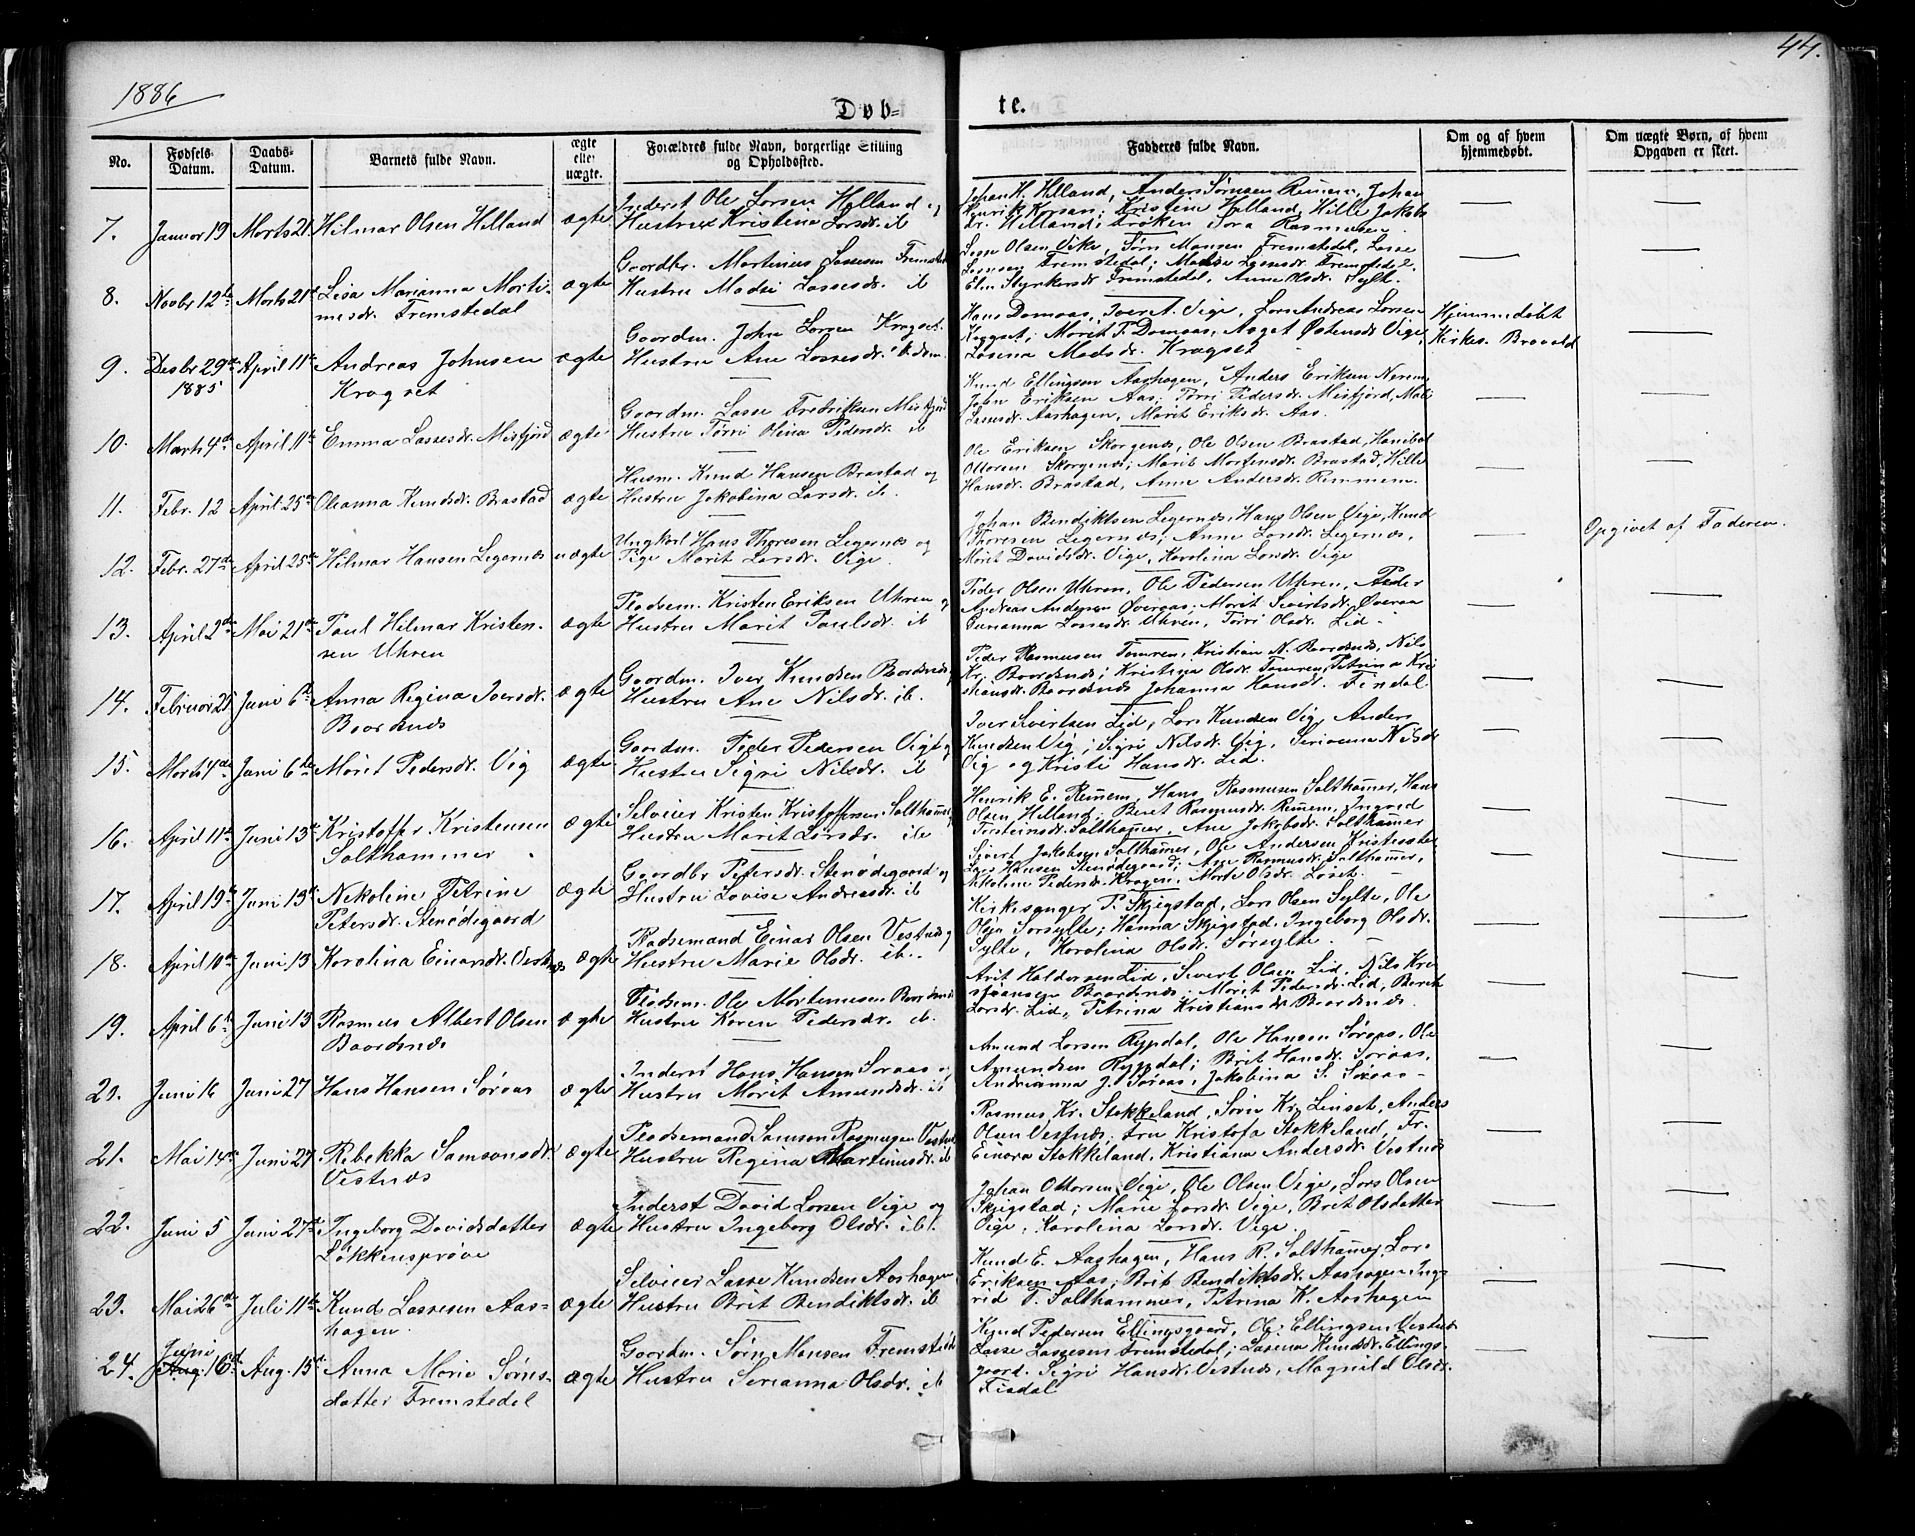 44.
1886
Døb-
te.
No.
Fødsels-
Datum.
Daabs-
Datum.
Barnets fulde Navn.
ægte
eller
uægte.
Forældres fulde Navn, borgerlige Stilling
og Opholdssted.
Fadderes fulde Navn.
Om og af hvem
hjemmedøbt.
Om uægte Børn, af hvem
Opgaven er skeet.
7. Januar 19 Marts 21. Hilmar Olsen Helland ægte
Inderst Ole Larsen Helland og
Hustru Kristina Larsdr. ib
Johan H. Helland, Anders Sørnsen Remem, Johan
Henrik Korsan; Kristine Helland, Hille Jakobs
dr. Helland; frøken Tora Rasmusen
8. Novbr 12te Marts 21de Lisa Marianna Marti-
nesdr. Fremstedal
ægte
Gaardbr. Martinus Lassesen Fremstedal
Hustru Madsi Lassesdr. ib
Olsen Vike, Sørn Monsen Fremstedal, Lasse
Fremstedal; Madsi Lassesdr. Fremstedal
Elen Styrkersdr. Fremstedal, Anne Olsdr. Sylte.
9. Desbr 29de
1885
April 11te Andreas Johnsen
Kragset
ægte
Gaardm. John Larsen Kragset.
Hustru Ane Lassesdr. ibdm.
Hans Domaas, Iver A. Vige, Lars Andreas Larsen
Kragset; Marit P. Domaas, Aaget Østensdr Vige,
Lasina Madsdr. Kragset
Hjemmedøbt
Kirkes. Bravold
10. Marts 4de April 11te Emma Lassesdr. Misfjord ægte
Gaardm. Lasse Fredriksen Misfjord
Hustru Tørri Olina Pedersdr. ib
Knud Ellingsen Aashagen, Anders Eriksen Nerem,
John Eriksen Aas; Tørri Pedersdr. Misfjord, Mali
Lassesdr. Aarhagen, Marit Eriksdr. Aas.
11. Febr. 12 April 25de Oleanna Knudsdr. Brastad ægte
Husm. Knud Hansen Brastad og
Hustru Jakobina Larsdr. ib.
Ole Eriksen Skorgenes, Ole Olsen Brastad, Hanibal
Ottosen Skorgenes; Marit Mortensdr. Brastad, Hille
Hansdr. Brastad, Anne Andersdr. Remmem.
12. Febr. 27de April 25de Hilmar Hansen Legernæs uægte
Ungkarl Hans Thoresen Legernæs og
Pige Marit Larsdr. Vige.
Johan Bendiktsen Legernæs, Hans Olsen Vige, Knud
Thoresen Legernæs; Anne Larsdr. Legernæs,
Marit Davidsdr. Vige, Karolina Larsdr. Vige
Opgivet af Faderen.
13. April 2de Mai 21de Paul Hilmar Kristen-
sen Uhren
ægte
Pladsm. Kristen Eriksen Uhren og
Hustru Marit Paulsdr. ib
Peder Olsen Uhren, Ole Pedersen Uhren, Peder
Andreas Andersen Øveraas; Marit Sivertsdr. Øveraa
Lassesdr. Uhren, Tørri Olsdr. Lid.
14. Februar 25 Juni 6te Anna Regina Iversdr.
Baardsnæs
ægte
Gaardm. Iver Knudsen Baardsnæs og
Hustru Ane Nilsdr. ib.
Peder Rasmusen Tomren, Kristian N. Baardsnæs, Nils
Kr. Baardsnæs; Kristina Olsdr. Tomren, Petrina Kri
stiansdr. Baardsnæs Johanna Hansdr. Findal
15. Marts 4de Juni 6te Marit Pedersdr. Vig ægte
Gaardm. Peder Pedersen Vig og
Hustru Sigri Nilsdr. ib
Iver Sivertsen Lid, Lars Knudsen Vig, Anders
Knudsen Vig; Sigri Nilsdr. Vig, Serianna Nilsdr.
Vig og Kristi Hansdr. Lid.
16. April 11te Juni 13de Kristoffer Kristensen
Salthammer
ægte
Selveier Kristen Kristoffersen Salthammer og
Hustru Marit Larsdr. ib
Henrik E. Remem, Hans Rasmusen Salthamer, Hans
Olsen Helland; Beret Rasmusdr. Remem, Ingrid
Torsteinsdr. Salthamer, Ane Jakobsdr. Salthamer
17. April 19de Juni 13de Nekoline Petrine
Petersdr. Stenødegaard
ægte
Gaardbr Petersdr. Stenødegaard og
Hustru Lovise Andreasdr. ib
Sivert Jakobsen Salthamer, Ole Andersen
Lars Hansen Stenødegaard; Ane Rasmusdr. Salthamer,
Nikoline Pedersdr. Kragen, Marte Olsdr. Løset.
18. April 10de Juni 13 Karolina Einarsdr. Vestnæs ægte
Pladsemand Einar Olsen Vestnæs og
Hustru Marie Olsdr. ib.
Kirkesanger P. Skjegstad, Lars Olsen Sylte, Ole
Olsen Sorsylte; Hanna Skjegstad, Ingeborg Olsdr.
Sylte, Karolina Olsdr. Sorsylte.
19. April 6te Juni 13 Rasmus Albert Olsen
Baardsnæs
ægte
Pladsm. Ole Martinusen Baardsnæs
Hustru Karen Pedersdr. ib.
Arit Haldorsen Lid, Sivert Olsen Lid, Nils Kri
stiansen Baardsnæs; Marit Pedersdr. Lid, Berit
Larsdr. Lid, Petrina Kristiansdr Baardsnæs.
20. Juni 16 Juni 27 Hans Hansen Søraas ægte
Inderst Hans Hansen Søraas og
Hustru Marit Amundsdr. ib
Amund Larsen Rypdal, Ole Hansen Søraas, Ole
Amundsen Rypdal; Brit Hansdr. Søraas,
Andrianna J. Søraas, Jakobina S. Søraas
21. Mai 14de Juni 27 Rebekka Samsonsdr.
Vestnæs
ægte
Pladsemand Samson Rasmusen Vestnæs
Hustru Regina Martinusdr. ib
Rasmus Kr. Stokkeland, Sørn Kr. Linset, Anders
Olsen Vestnæs; Fru Kristofa Stokkeland, Fr.
Einora Stokkeland, Kristiana Andersdr. Vestnæs
22. Juni 5 Juni 27de Ingeborg Davidsdatter
Løkkensprøve
ægte
Inderst David Larsen Vige og
Hustru Ingeborg Olsdr. ib.
Johan Ottosen Vige, Ole Olsen Vige, Lars Olsen
Skjegstad; Marie Larsdr. Vige, Brit Olsdatter
Vige, Karolina Larsdr. Vige.
23. Mai 26de Juli 11te Knud Lassesen Aas-
hagen.
ægte
Selveier Lasse Knudsen Aashagen
Hustru Brit Bendiktsdr. ib
Knud E. Aashagen, Hans R. Salthamer, Lars
Eriksen Aas; Brit Bendiktsdr. Aashagen, Ing-
rid T. Salthammer, Petrina K. Aashagen
24. Juni
Aug. 16de Aug. 15de Anna Marie Sørns-
datter Fremstedal
ægte
Gaardm. Sørn Monsen Fremstedal
Hustru Serianna Olsdr. ib
Knud Pedersen Ellingsgaard, Ole Ellingsen Vestnæs
Lasse Lassesen Fremstedal; Lasina Knudsdr. Ellings-
gaard. Sigri Hansdr. Vestnæs, Magnild Olsdr.
Fisdal